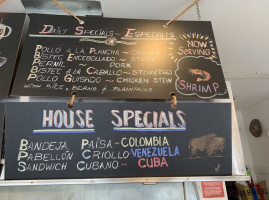 Daily Specials ~ Especiales
Pollo a la Plancha - Chicken
Bistec Encebollado - Steak
Pernil - Pork
Bistec a la Caballo - Steak/Eggs
Pollo Guisado - Chicken Stew
with Rice, Beans & Plantains
Now
Serving
Shrimp
House Specials
Bandeja Paisa - Colombia
Pabellón Criollo - Venezuela
Sandwich Cubano - Cuba